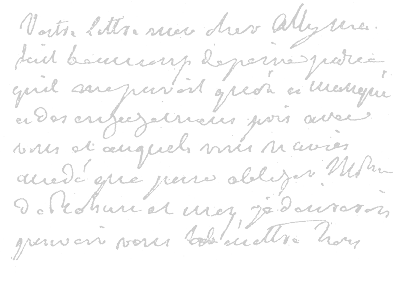 Vostre lettre mon cher
fait beaucoup de peine parce
qu'il me paroit qu'on a manqué
a des engagemens pris avec
vous et auquels vous n'aviés
cedé que pour obliger Mr
de Rohan et moy, je
pouvoir vous mettre hors